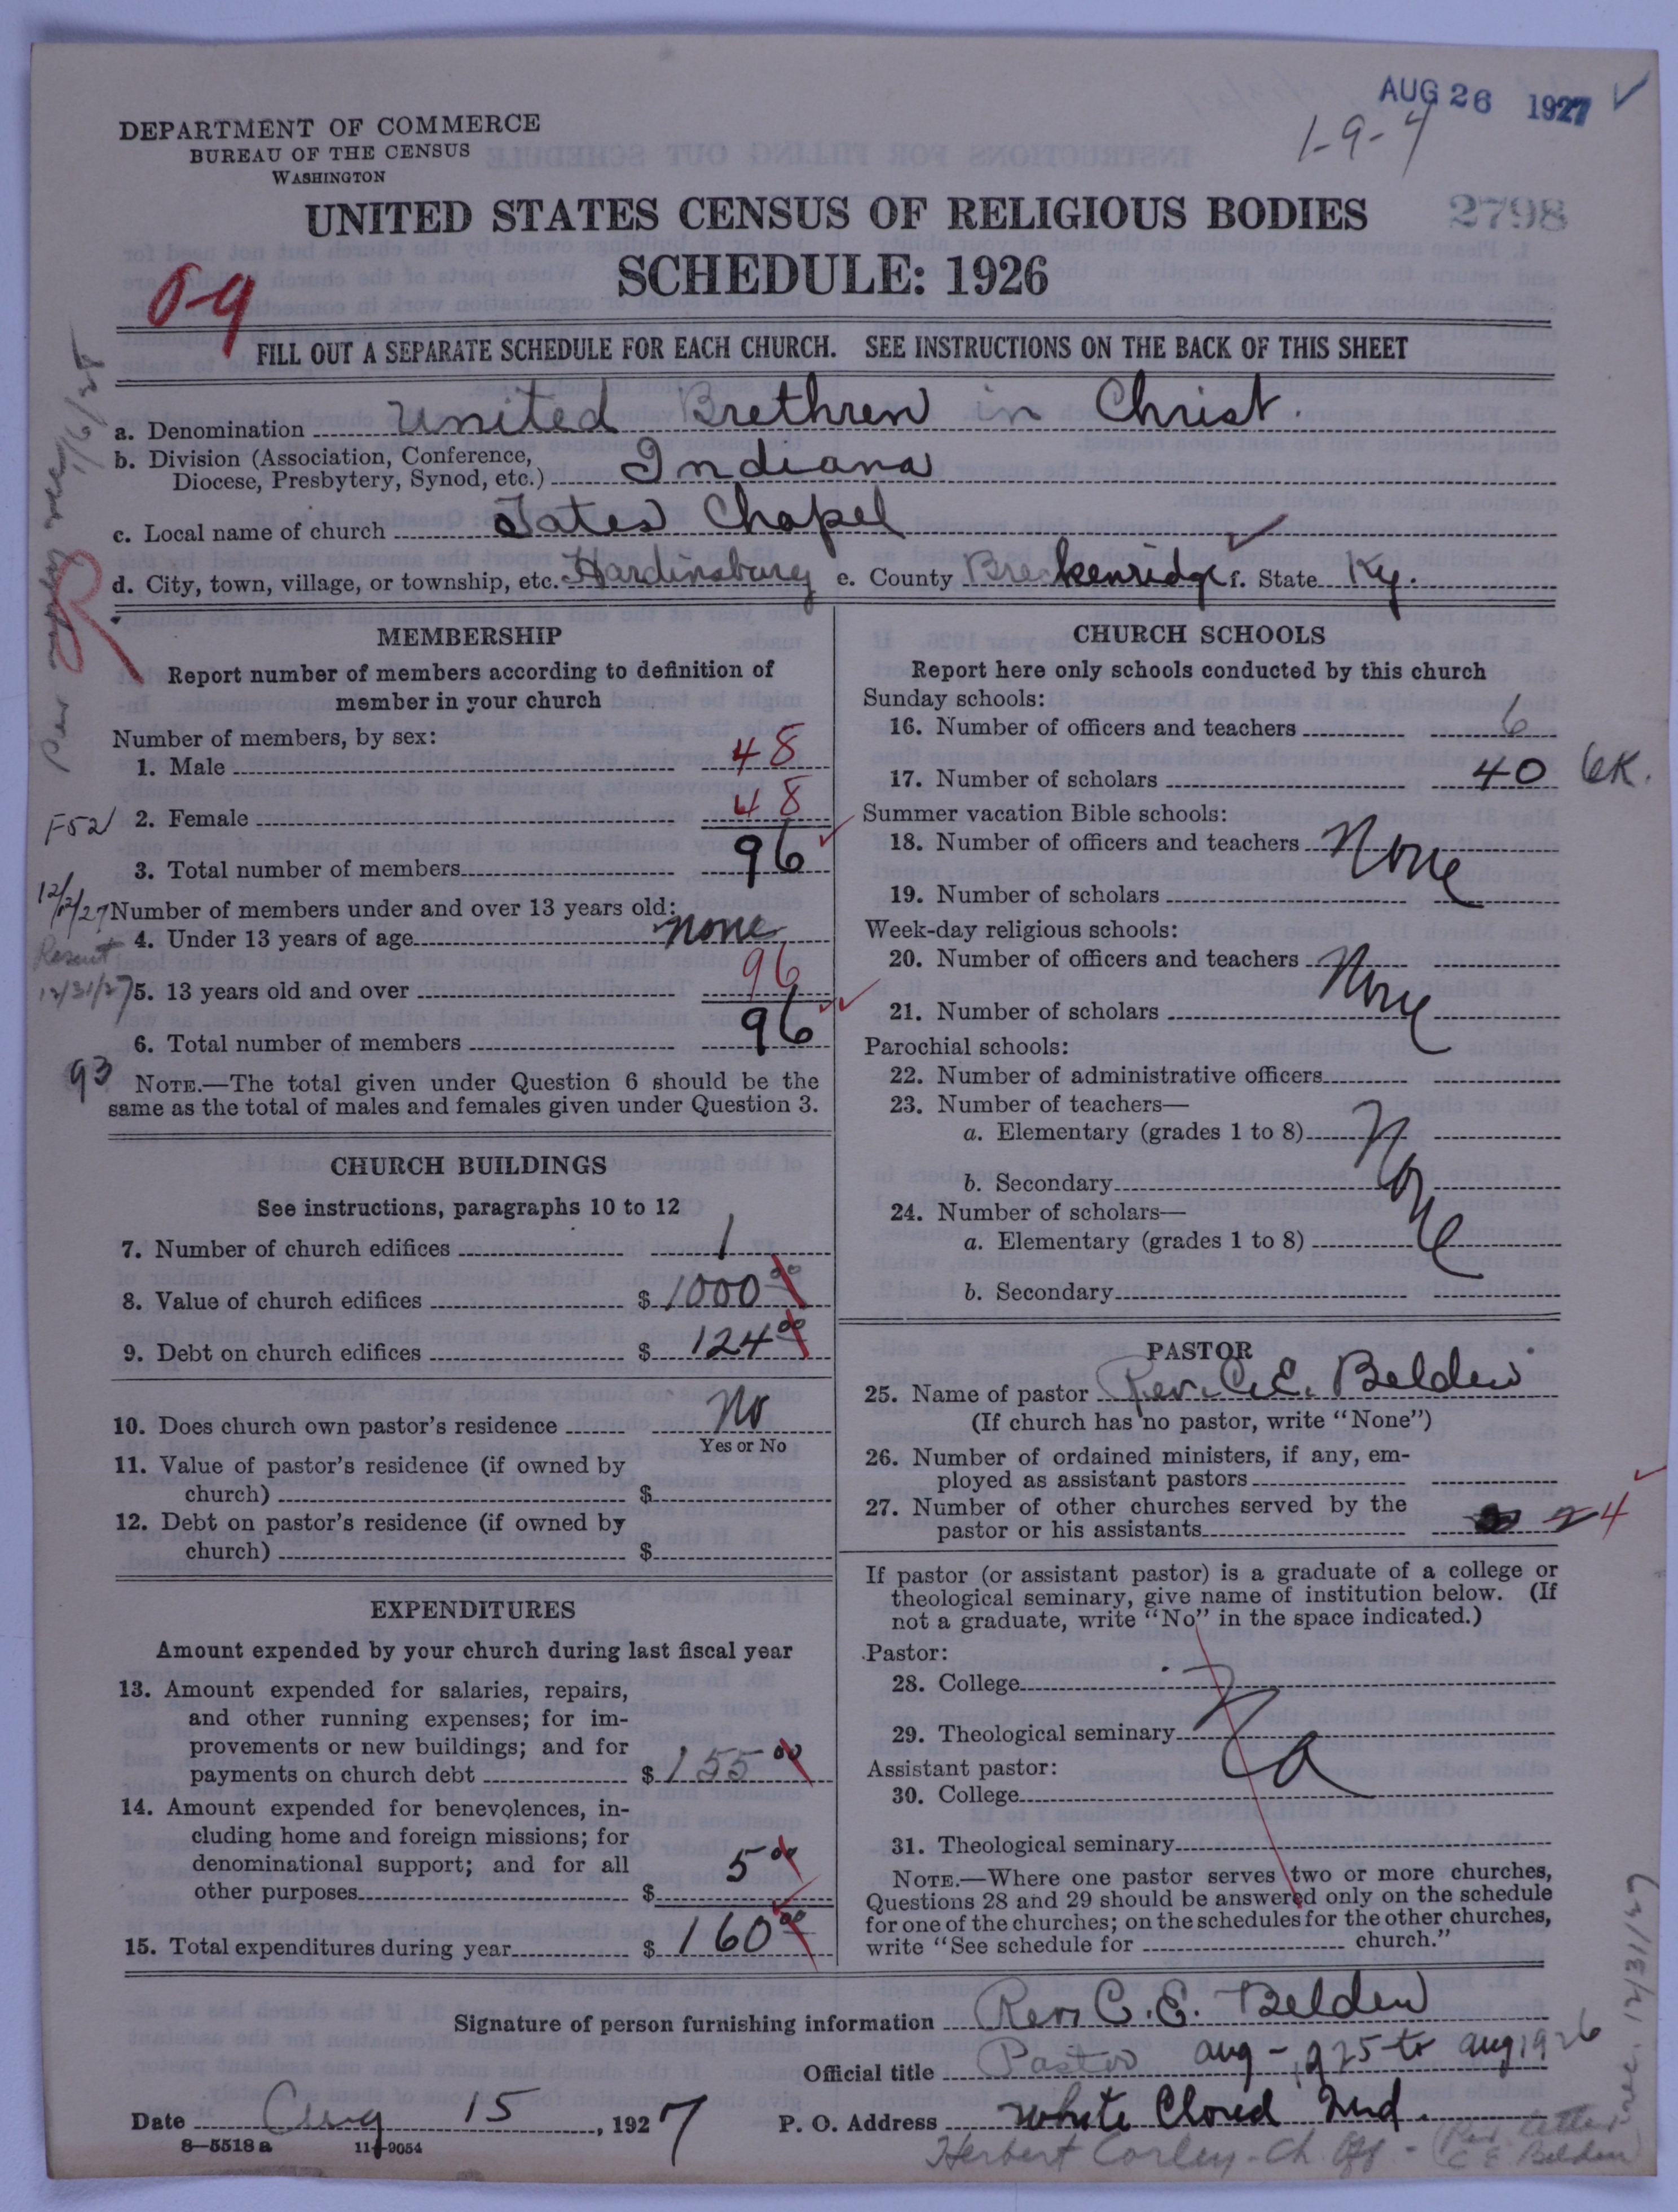 AUG 26 1927 ✓
1-9-4
DEPARTMENT OF COMMERCE
BUREAU OF THE CENSUS
WASHINGTON
UNITED STATES CENSUS OF RELIGIOUS BODIES
2798
SCHEDULE: 1926
09
FILL OUT A SEPARATE SCHEDULE FOR EACH CHURCH. SEE INSTRUCTIONS ON THE BACK OF THIS SHEET
a. Denomination United Brethren in Christ.
b. Division (Association, Conference,
Diocese, Presbytery, Synod, etc.) Indiana
c. Local name of church Tates Chapel
d. City, town, village, or township, etc. Hardinsburg e. County Breckenridge f. State Ky.
R
MEMBERSHIP
Report number of members according to definition of
member in your church
Number of members, by sex:
1. Male 48
F52
2. Female 48
3. Total number of members 96
12/12/27
Number of members under and over 13 years old:
4. Under 13 years of age none
12/31/27
5. 13 years old and over 96
6. Total number of members 96
93
NOTE.—The total given under Question 6 should be the
same as the total of males and females given under Question 3.
CHURCH BUILDINGS
See instructions, paragraphs 10 to 12
7. Number of church edifices 1
8. Value of church edifices $ 1000 00
9. Debt on church edifices $ 124 00
10. Does church own pastor's residence No
Yes or No
11. Value of pastor's residence (if owned by
church) $
12. Debt on pastor's residence (if owned by
church) $
EXPENDITURES
Amount expended by your church during last fiscal year
13. Amount expended for salaries, repairs,
and other running expenses; for im-
provements or new buildings; and for
payments on church debt $ 155 00
14. Amount expended for benevolences, in-
cluding home and foreign missions; for
denominational support; and for all
other purposes $ 5 00
15. Total expenditures during year $ 160 00
CHURCH SCHOOLS
Report here only schools conducted by this church
Sunday schools:
16. Number of officers and teachers 6
17. Number of scholars 40
Summer vacation Bible schools:
18. Number of officers and teachers None
19. Number of scholars
Week-day religious schools:
20. Number of officers and teachers None
21. Number of scholars
Parochial schools:
22. Number of administrative officers
23. Number of teachers—
a. Elementary (grades 1 to 8) None
b. Secondary
24. Number of scholars—
a. Elementary (grades 1 to 8)
b. Secondary
PASTOR
25. Name of pastor Rev. C. E. Belden
(If church has no pastor, write "None")
26. Number of ordained ministers, if any, em-
ployed as assistant pastors
27. Number of other churches served by the
pastor or his assistants 4
If pastor (or assistant pastor) is a graduate of a college or
theological seminary, give name of institution below. (If
not a graduate, write "No" in the space indicated.)
Pastor:
28. College
29. Theological seminary No
Assistant pastor:
30. College
31. Theological seminary
NOTE.—Where one pastor serves two or more churches,
Questions 28 and 29 should be answered only on the schedule
for one of the churches; on the schedules for the other churches,
write "See schedule for church."
Signature of person furnishing information Rev. C. E. Belden
Official title Pastor aug - 1925 to aug 1926
Date Aug 15, 1927 P. O. Address White Cloud Ind.
8—5518 a 11—9054
Herbert Corley - Ch. Off - (Per letter
C E Belden)
rec. 12/31/27